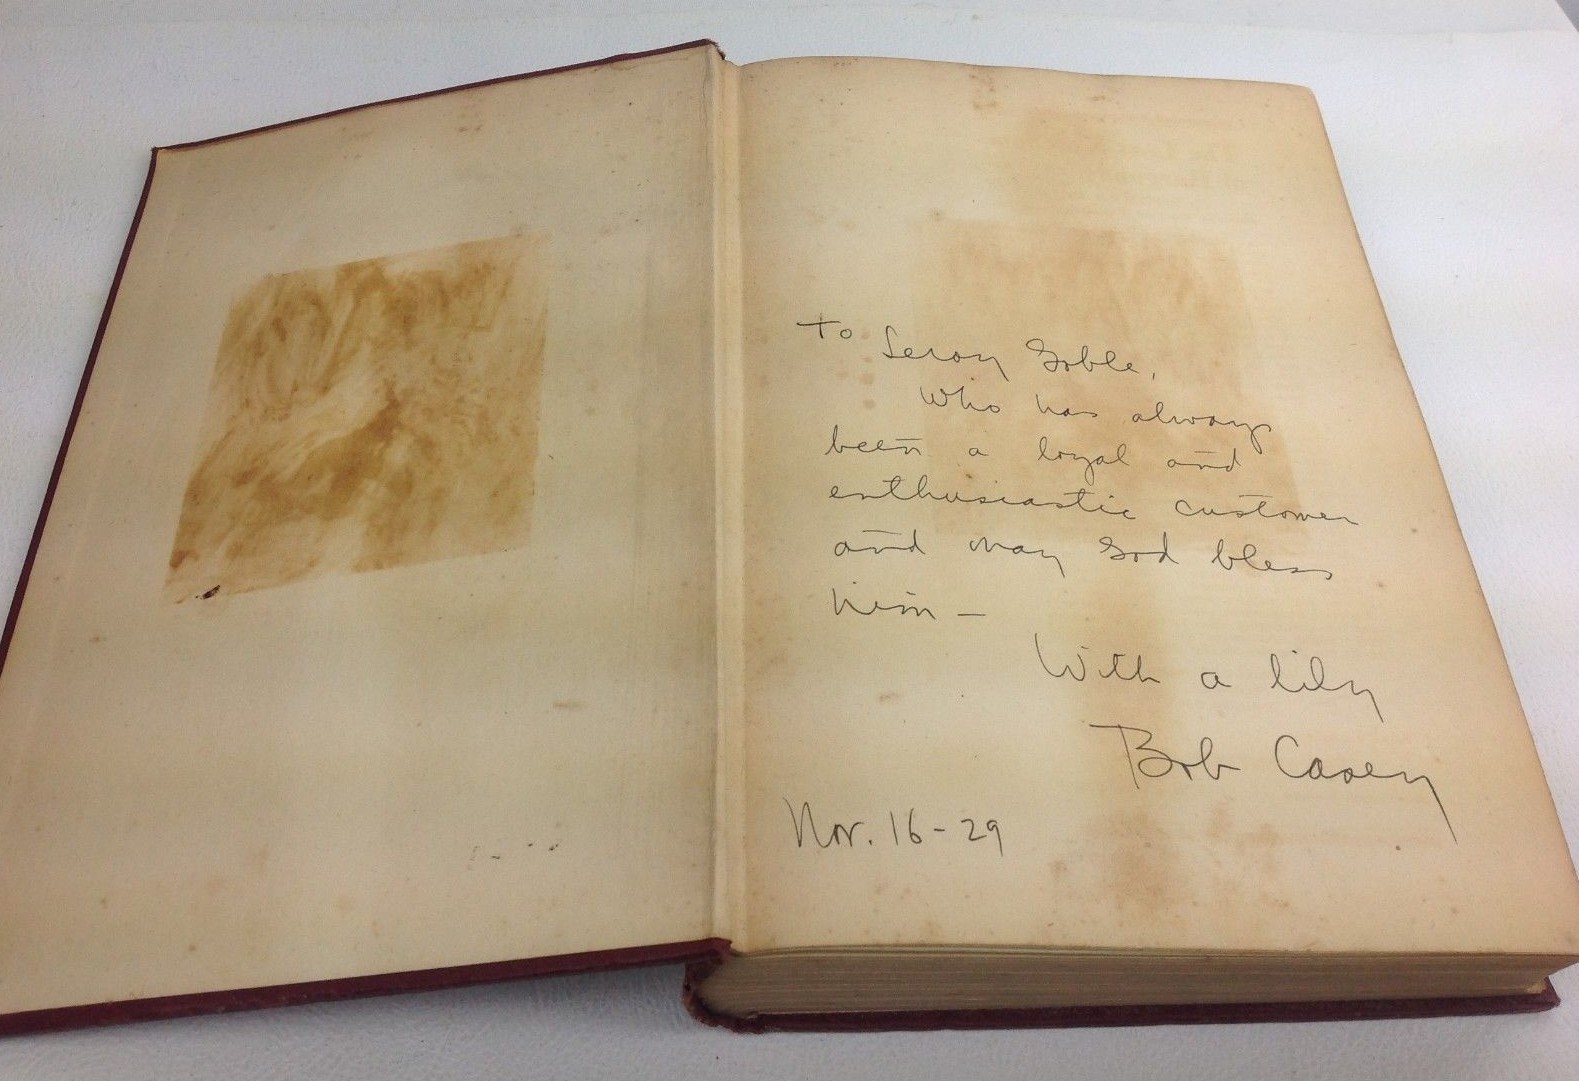 To Leroy Goble,
Who has always
been a loyal and
enthusiastic customer
and may God bless
him –
With a lily
Bob Casey
Nov. 16-29